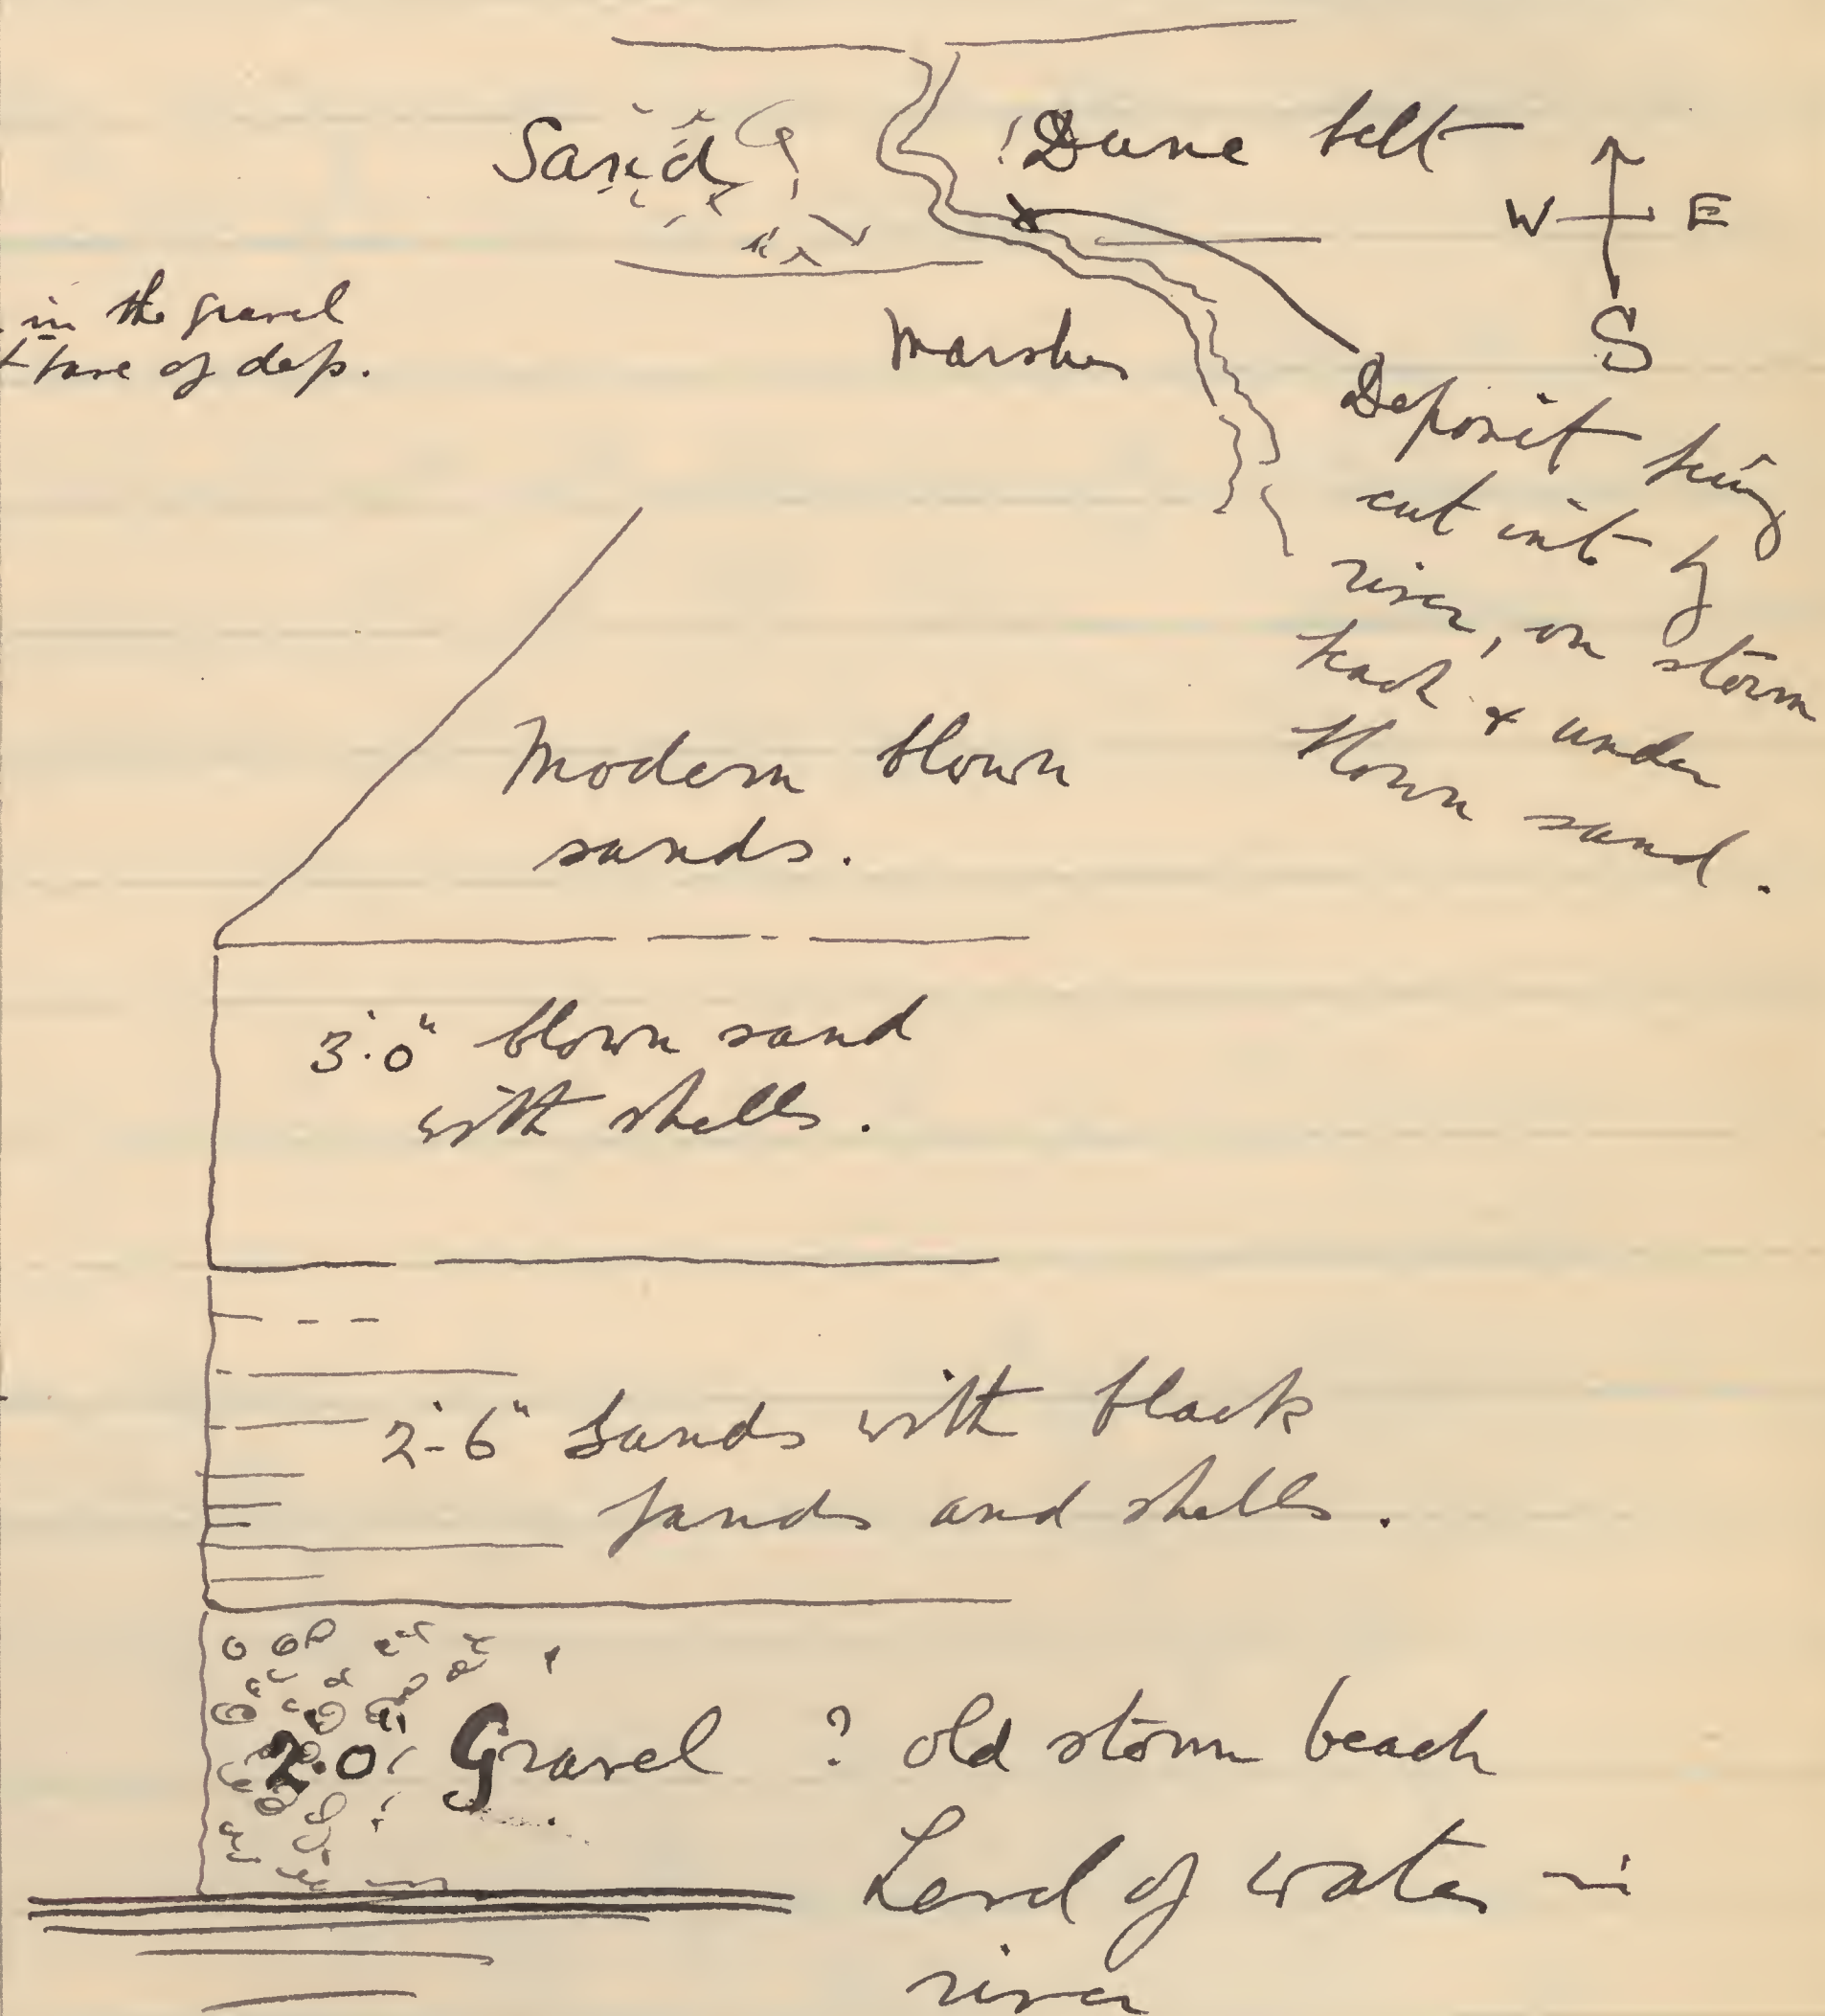 Sand
Dune belt
W E
S
in the gravel
base of dep.
Marshes
Deposit being
cut into by
river, on storm
beach & under
blown sand.
Modern blown
sands.
3'.0" blown sand
with shells.
2'-6" Sands with black
sands and shells.
2.0 Gravel ? old storm beach
Level of water in
river